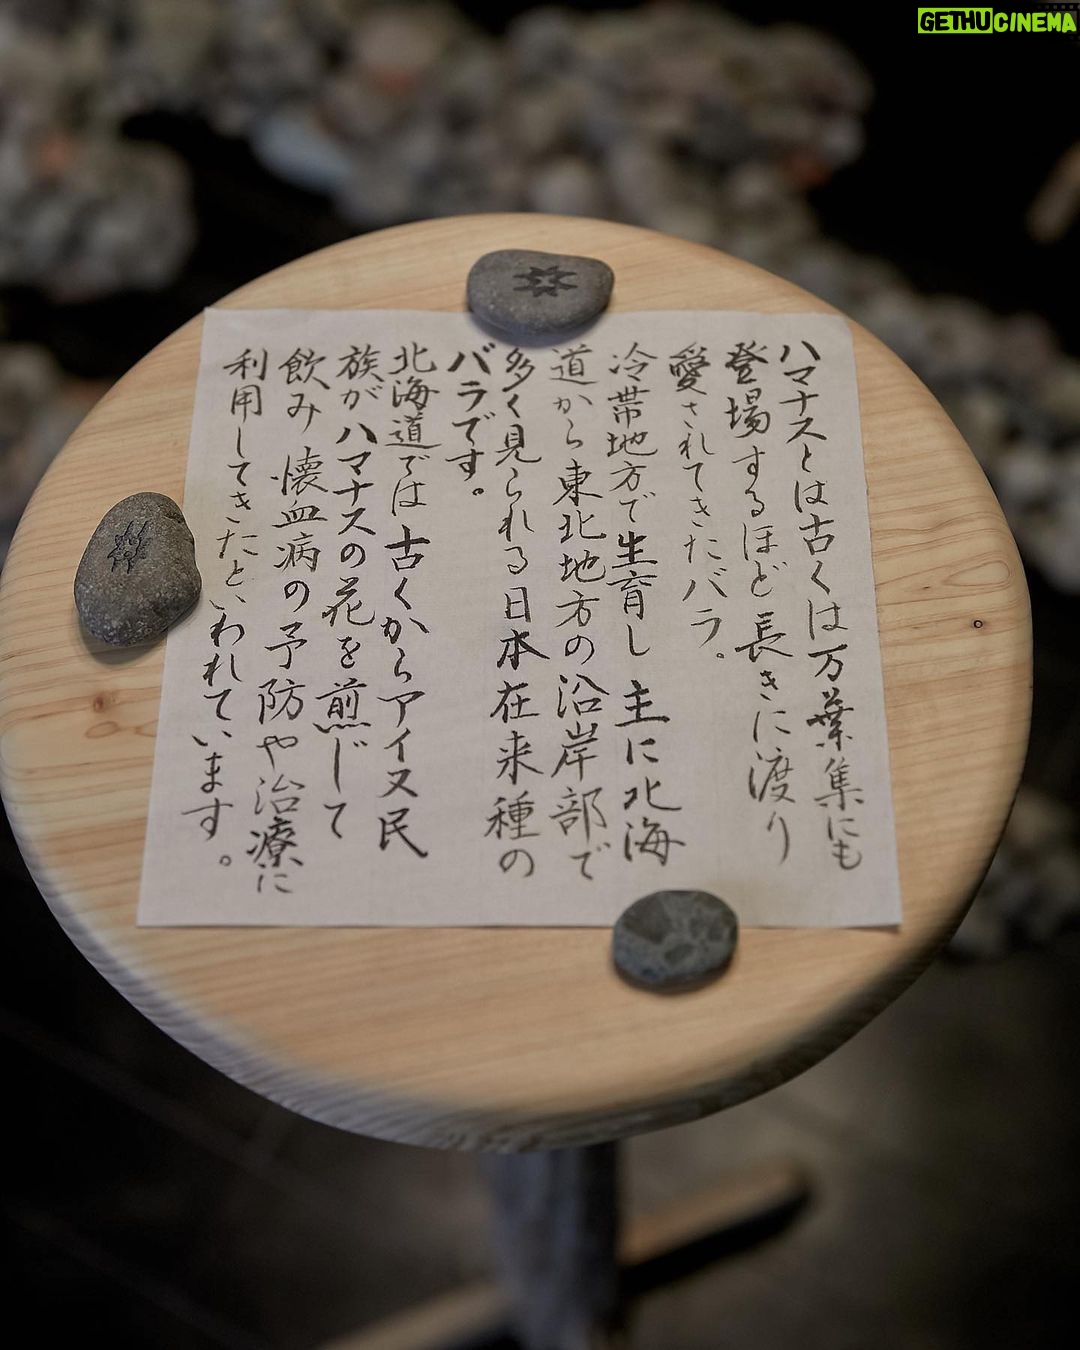 ハマナスとは古くは万葉集にも
登場するほど長きに渡り
愛されてきたバラ。
冷帯地方で生育し 主に北海
道から東北地方の沿岸部で
多く見られる日本在来種の
バラです。
北海道では古くからアイヌ民
族がハマナスの花を煎じて
飲み 懐血病の予防や治療に
利用してきたといわれています。
GETHUCINEMA